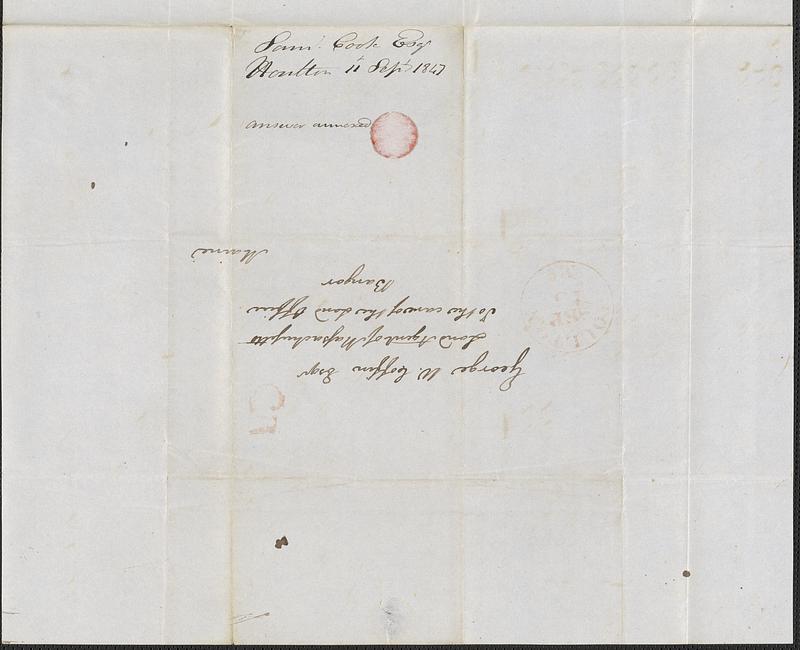 Saml. Cook Esq
Houlton 11 Sept 1847
answer annexed
George W. Coffin Esqr
Land Agent of Massachusetts
To the care of the Land Office
Bangor
Maine
HOULTON
SEP